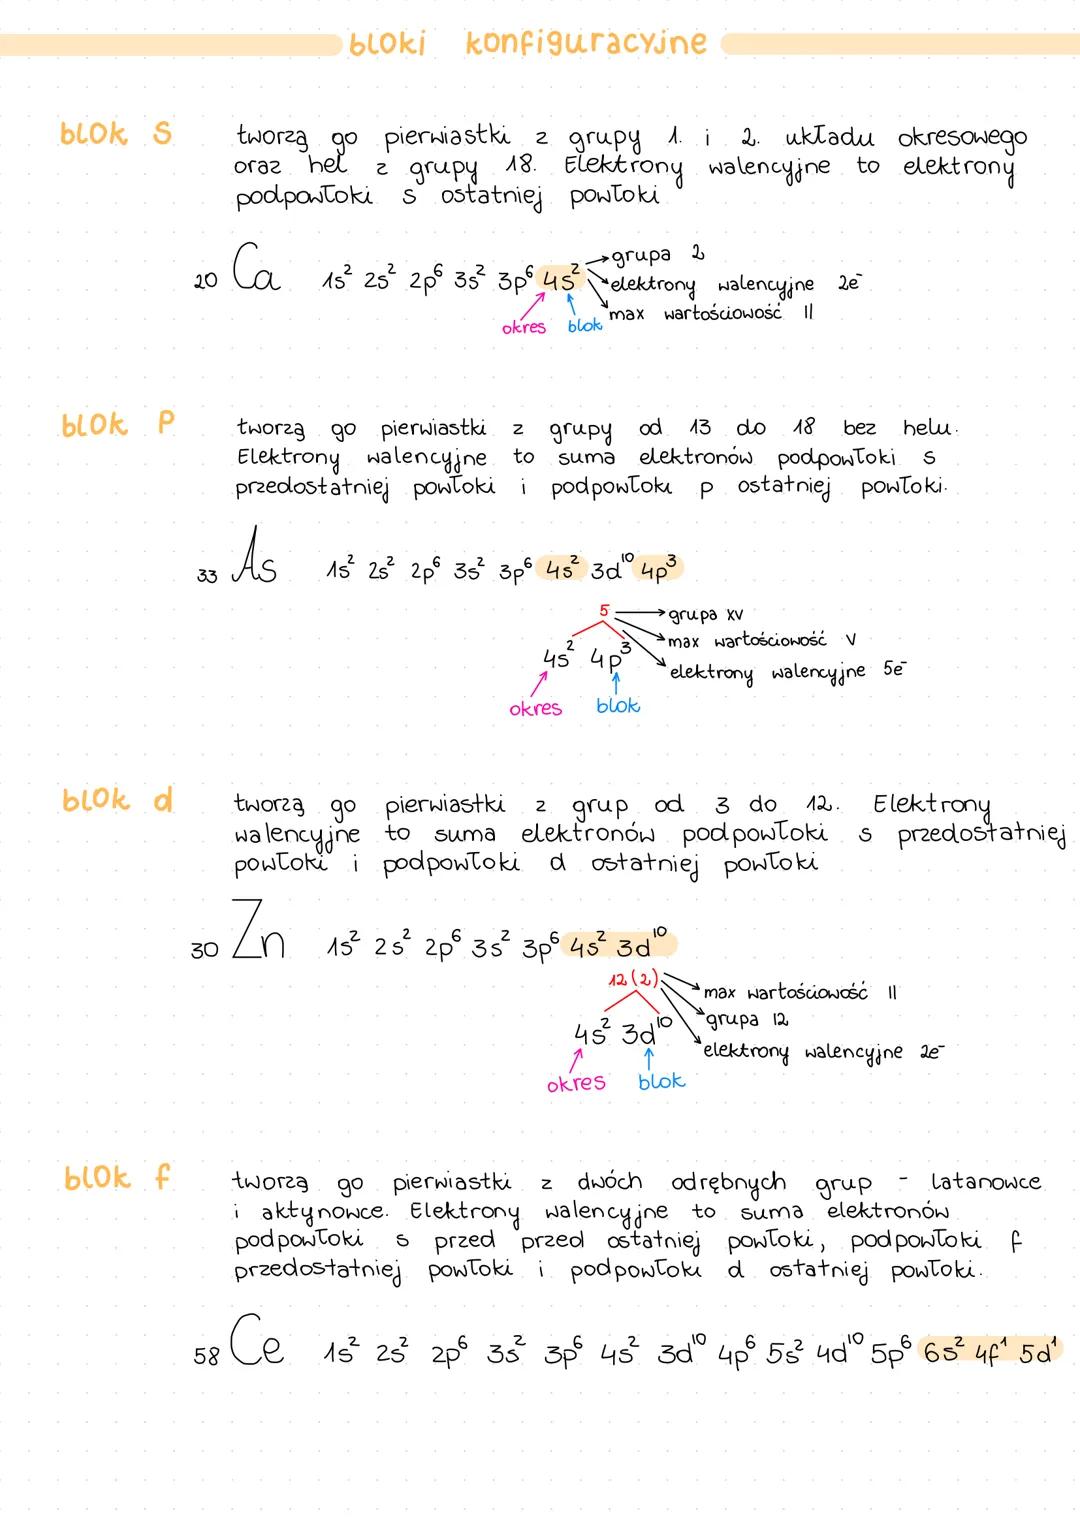 bloki konfiguracyjne
blok s
tworzą go pierwiastki z grupy 1. i 2. układu okresowego
oraz hel z grupy 18. Elektrony walencyjne to elektrony
podpowłoki s ostatniej powłoki
₂₀Ca 1s² 2s² 2p⁶ 3s² 3p⁶ 4s²
grupa 2
elektrony walencyjne 2e⁻
max wartościowość II
okres blok
blok p
tworzą go pierwiastki z grupy od 13 do 18 bez helu.
Elektrony walencyjne to suma elektronów podpowłoki s
przedostatniej powłoki i podpowłoki p ostatniej powłoki.
₃₃As 1s² 2s² 2p⁶ 3s² 3p⁶ 4s² 3d¹⁰ 4p³
5
grupa XV
max wartościowość V
4s² 4p³
elektrony walencyjne 5e⁻
okres blok
blok d
tworzą go pierwiastki z grup od 3 do 12. Elektrony
walencyjne to suma elektronów podpowłoki s przedostatniej
powłoki i podpowłoki d ostatniej powłoki
₃₀Zn 1s² 2s² 2p⁶ 3s² 3p⁶ 4s² 3d¹⁰
12 (2)
max wartościowość II
grupa 12
4s² 3d¹⁰
elektrony walencyjne 2e⁻
okres blok
blok f
tworzą go pierwiastki z dwóch odrębnych grup - latanowce
i aktynowce. Elektrony walencyjne to suma elektronów
podpowłoki s przed przed ostatniej powłoki, podpowłoki f
przedostatniej powłoki i podpowłoki d ostatniej powłoki.
₅₈Ce 1s² 2s² 2p⁶ 3s² 3p⁶ 4s² 3d¹⁰ 4p⁶ 5s² 4d¹⁰ 5p⁶ 6s² 4f¹ 5d¹